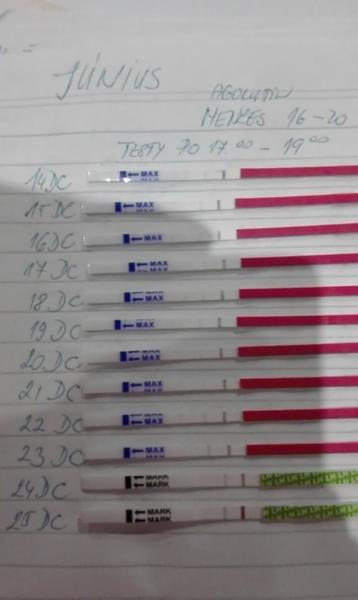 JÚNIUS
AGOLUTIN
MENZES 16-20
TESTY PO 17 00 - 19 00
14DC ← MAX
15DC ← MAX
16DC ← MAX
17DC ← MAX
18DC ← MAX
19DC ← MAX
20DC ← MAX
21DC ← MAX
22DC ← MAX
23DC ← MAX
24DC ← MARK LH LH LH LH
25DC ← MARK LH LH LH LH